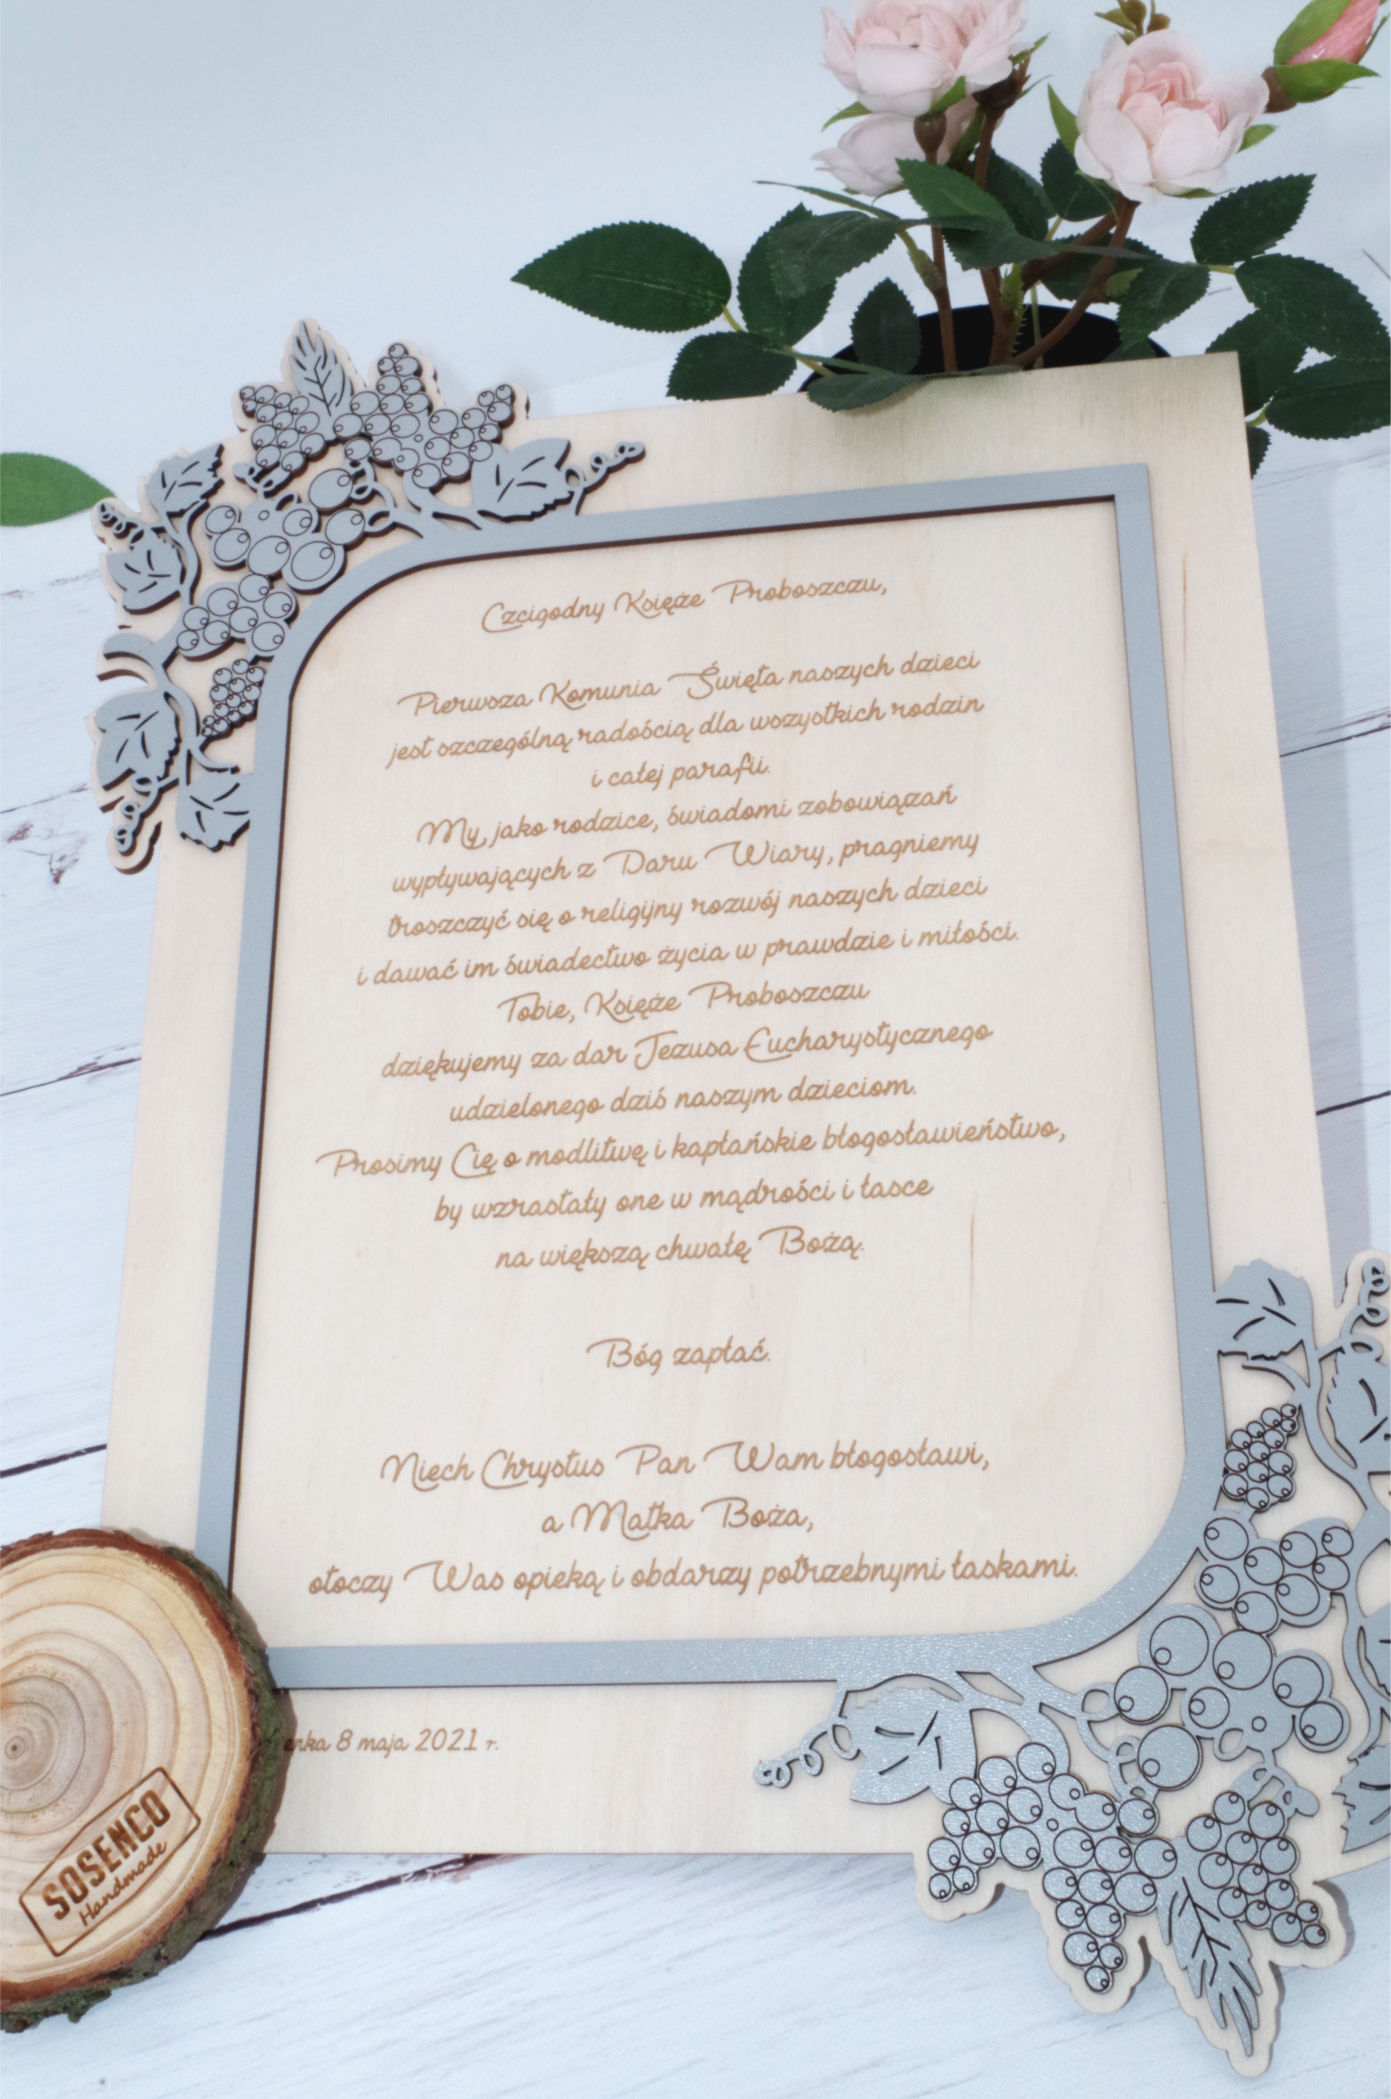 Czcigodny Księże Proboszczu,
Pierwsza Komunia Święta naszych dzieci
jest szczególną radością dla wszystkich rodzin
i całej parafii.
My, jako rodzice, świadomi zobowiązań
wypływających z Daru Wiary, pragniemy
troszczyć się o religijny rozwój naszych dzieci
i dawać im świadectwo życia w prawdzie i miłości.
Tobie, Księże Proboszczu
dziękujemy za dar Jezusa Eucharystycznego
udzielonego dziś naszym dzieciom.
Prosimy Cię o modlitwę i kapłańskie błogosławieństwo,
by wzrastały one w mądrości i łasce
na większą chwałę Bożą.
Bóg zapłać.
Niech Chrystus Pan Wam błogosławi,
a Matka Boża,
otoczy Was opieką i obdarzy potrzebnymi łaskami.
8 maja 2021 r.
SOSENCO
Handmade